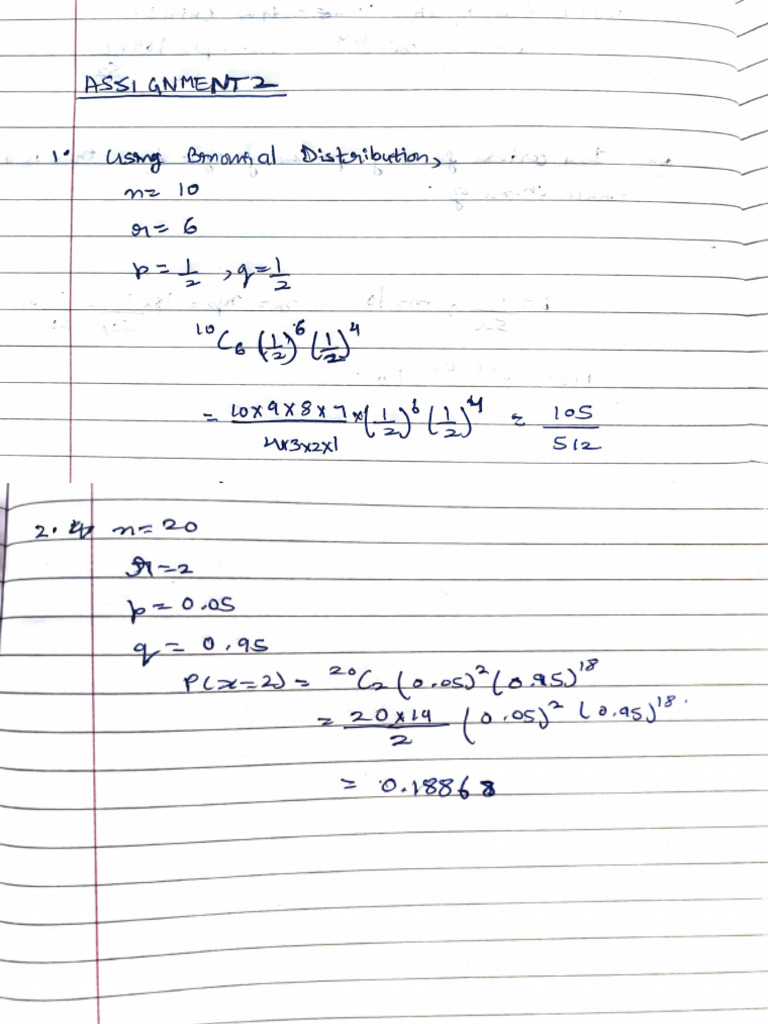 ASSIGNMENT 2
1. Using Binomial Distribution,
n= 10
r= 6
p = 1/2 , q = 1/2
¹⁰C₆ (1/2)⁶ (1/2)⁴
= 10×9×8×7 / 4×3×2×1 × (1/2)⁶ (1/2)⁴ = 105/512
2. n= 20
r=2
p = 0.05
q = 0.95
P(x=2) = ²⁰C₂ (0.05)² (0.95)¹⁸
= 20×19 / 2 (0.05)² (0.95)¹⁸.
= 0.18868